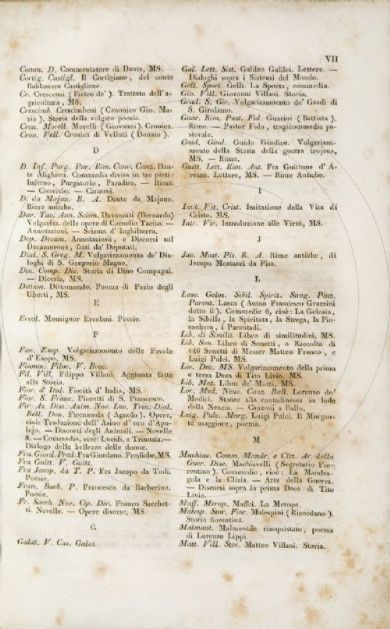 VII
Comm. D. Commentatore di Dante, MS.
Cortig. Castigl. Il Cortigiano, del conte
Baldassare Castiglione.
Cr. Crescenzi (Pietro de'). Trattato dell'a-
gricoltura, MS.
Crescimb. Crescimbeni (Canonico Gio. Ma-
rio). Storia della volgar poesia.
Cron. Morell. Morelli (Giovanni). Cronica.
Cron. Vell. Cronica di Velluti (Donato).
D
D. Inf. Purg. Par. Rim. Conv. Canz. Dan-
te Alighieri. Commedia divisa in tre parti:
Inferno, Purgatorio, Paradiso. — Rime.
— Convivio. — Canzoni.
D. da Majan. R. A. Dante da Majano.
Rime antiche.
Dav. Tac. Ann. Scism. Davanzati (Bernardo)
Volgarizz. delle opere di Cornelio Tacito. —
Annotazioni. — Scisma d'Inghilterra.
Dep. Decam. Annotazioni, e Discorsi sul
Decamerone, fatti da' Deputati.
Dial. S. Greg. M. Volgarizzamento de' Dia-
loghi di S. Gregorio Magno.
Din. Comp. Dic. Storia di Dino Compagni.
— Diceria, MS.
Dittam. Dittamondo. Poema di Fazio degli
Uberti, MS.
E
Ercol. Monsignor Ercolani. Poesie.
F
Fav. Esop. Volgarizzamento delle Favole
d'Esopo, MS.
Fiamm. Filoc. V. Bocc.
Fil. Vill. Filippo Villani. Aggiunta fatta
alla Storia.
Fior. d'Ital. Fiorità d'Italia, MS.
Fior. S. Franc. Fioretti di S. Francesco.
Fir. As. Disc. Anim. Nov. Luc. Trin. Dial.
Bell. Don. Firenzuola (Agnolo). Opere,
cioè: Traduzione dell'Asino d'oro d'Apu-
lejo. — Discorsi degli Animali. — Novelle
8. — Commedie, cioè: Lucidi, e Trinuzia.—
Dialogo delle bellezze delle donne.
Fra Giord. Pred. Fra Giordano. Prediche, MS.
Fra Guitt. V. Guitt.
Fra Jacop. da T. P. Fra Jacopo da Todi.
Poesie.
Fran. Barb. P. Francesco da Barberino.
Poesie.
Fr. Sacch. Nov. Op. Div. Franco Sacchet-
ti. Novelle. — Opere diverse, MS.
G
Galat. V. Cas. Galat.
Gal. Lett. Sist. Galileo Galilei. Lettere. —
Dialoghi sopra i Sistemi del Mondo.
Gell. Sport. Gelli. La Sporta, commedia.
Gio. Vill. Giovanni Villani. Storia.
Grad. S. Gir. Volgarizzamento de' Gradi di
S. Girolamo.
Guar. Rim. Past. Fid. Guarini (Battista).
Rime. — Pastor Fido, tragicommedia pa-
storale.
Guid. Giud. Guido Giudice. Volgarizza-
mento della Storia della guerra trojana,
MS. — Rime.
Guitt. Lett. Rim. Ant. Fra Guittone d'A-
rezzo. Lettere, MS. — Rime Antiche.
I
Imit. Vit. Crist. Imitazione della Vita di
Cristo, MS.
Intr. Vir. Introduzione alle Virtù, MS.
J
Jac. Most. Pis. R. A. Rime antiche, di
Jacopo Mostacci da Pisa.
L
Lasc. Gelos. Sibil. Spirit. Streg. Pinz.
Parent. Lasca (Anton Francesco Grazzini
detto il). Commedie 6, cioè: La Gelosia,
la Sibilla, la Spiritata, la Strega, la Pin-
zochera, i Parentadi.
Lib. di Similit. Libro di similitudini, MS.
Lib. Son. Libro di Sonetti, o Raccolta di
146 Sonetti di Messer Matteo Franco, e
Luigi Pulci, MS.
Liv. Dec. MS. Volgarizzamento della prima
e terza Deca di Tito Livio, MS.
Lib. Mot. Libro de' Motti, MS.
Lor. Med. Nenc. Canz. Ball. Lorenzo de'
Medici. Stanze alla contadinesca in lode
della Nencia. — Canzoni a Ballo.
Luig. Pulc. Morg. Luigi Pulci. Il Morgan-
te maggiore, poema.
M
Machiav. Comm. Mandr. e Cliz. Ar. della
Guer. Disc. Machiavelli (Segretario Fio-
rentino). Commedie, cioè: La Mandra-
gola e la Clizia. — Arte della Guerra.
— Discorsi sopra la prima Deca di Tito
Livio.
Maff. Merop. Maffei. La Merope.
Malesp. Stor. Fior. Malespini (Ricordano).
Storia fiorentina.
Malmant. Malmantile riacquistato, poema
di Lorenzo Lippi.
Matt. Vill. Stor. Matteo Villani. Storia.